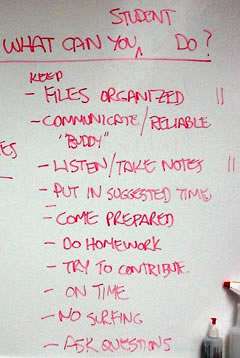 STUDENT
WHAT CAN YOU ^ DO?
KEEP
- FILES ORGANIZED ||
- COMMUNICATE/RELIABLE
"BUDDY"
- LISTEN/TAKE NOTES ||
- PUT IN SUGGESTED TIME
- COME PREPARED
- DO HOMEWORK
- TRY TO CONTRIBUTE.
- ON TIME
- NO SURFING
- ASK QUESTIONS